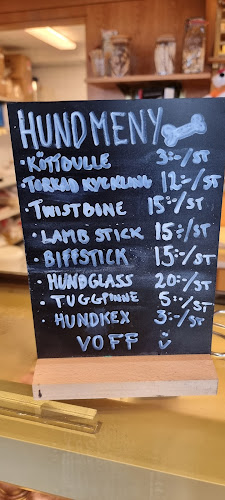 HUNDMENY
• KÖTTBULLE 3:-/ST
• TORKAD KYCKLING 12:-/ST
• TWISTBONE 15:-/ST
• LAMB STICK 15:-/ST
• BIFFSTICK 15:-/ST
• HUNDGLASS 20:-/ST
• TUGGPINNE 5:-/ST
• HUNDKEX 3:-/ST
VOFF